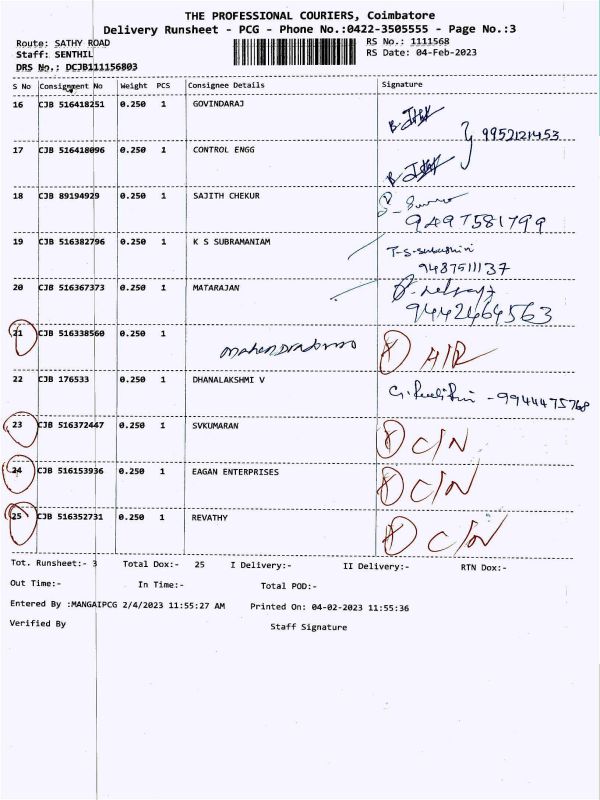 THE PROFESSIONAL COURIERS, Coimbatore
Delivery Runsheet - PCG - Phone No.:0422-3505555 - Page No.:3
Route: SATHY ROAD
RS No.: 1111568
Staff: SENTHIL
RS Date: 04-Feb-2023
DRS No.: DCJB111156803
S No Consignment No Weight PCS Consignee Details Signature
16 CJB 516418251 0.250 1 GOVINDARAJ
9952121453
17 CJB 516418096 0.250 1 CONTROL ENGG
18 CJB 89194929 0.250 1 SAJITH CHEKUR
9497581799
19 CJB 516382796 0.250 1 K S SUBRAMANIAM
T-S-subashini
9487511137
20 CJB 516367373 0.250 1 MATARAJAN
9442464563
21 CJB 516338560 0.250 1
X A/R
22 CJB 176533 0.250 1 DHANALAKSHMI V
-9944475768
23 CJB 516372447 0.250 1 SVKUMARAN X C/N
24 CJB 516153936 0.250 1 EAGAN ENTERPRISES X C/N
25 CJB 516352731 0.250 1 REVATHY X C/N
Tot. Runsheet:- 3 Total Dox:- 25 I Delivery:- II Delivery:- RTN Dox:-
Out Time:- In Time:- Total POD:-
Entered By :MANGAIPCG 2/4/2023 11:55:27 AM Printed On: 04-02-2023 11:55:36
Verified By Staff Signature